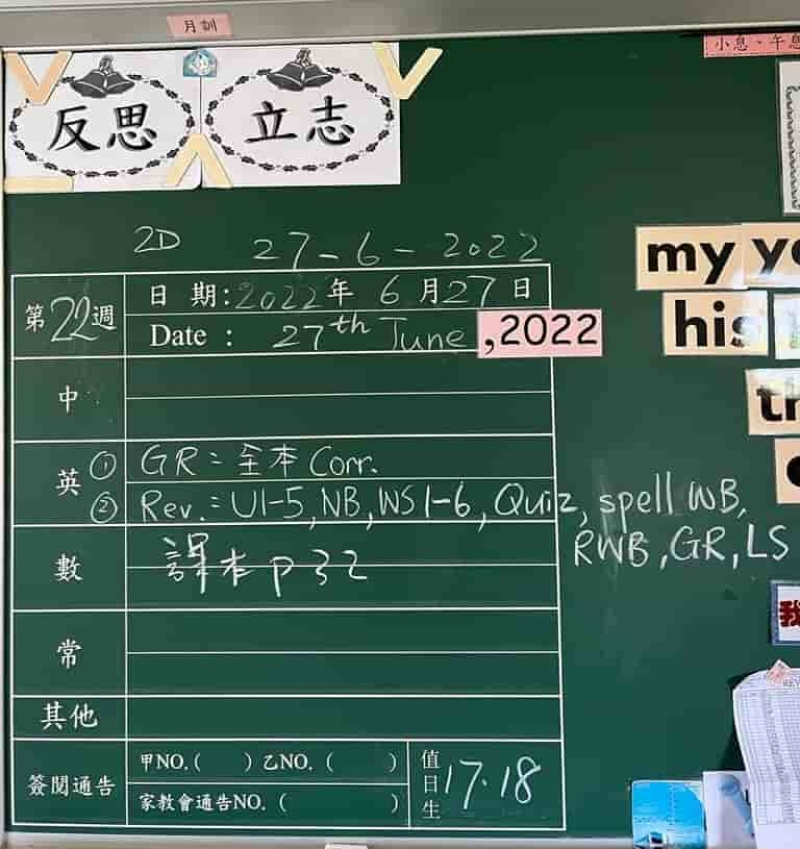 月訓
小息、午息
反思 立志
2D 27-6-2022
my
his
第22週
日 期:2022年 6月27日
Date : 27th June ,2022
中
英
① GR = 全本 Corr.
② Rev. = U1-5, NB, WS 1-6, Quiz, spell WB,
RWB, GR, LS
數
課本 p 32
常
其他
簽閱通告
甲NO.( ) 乙NO. ( )
家教會通告NO. ( )
值日生
17.18
我